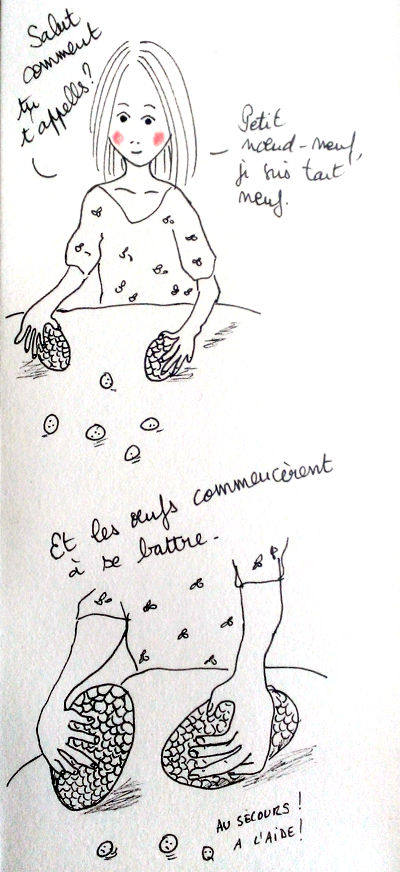 Salut
comment
tu
t'appells?
Petit
nœud-neuf,
je suis tout
neuf.
Et les œufs commencèrent
à se battre.
AU SECOURS !
A L'AIDE!